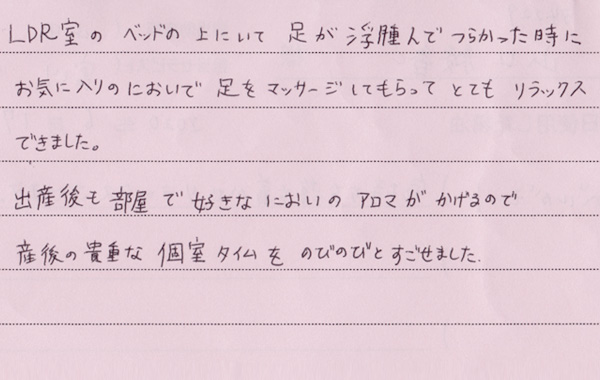 LDR室の ベッドの 上にいて 足が 浮腫んで つらかった時に
お気に入りのにおいで 足を マッサージしてもらって とても リラックス
できました。
出産後も 部屋で 好きな においの アロマが かげるので
産後の貴重な 個室タイムを のびのびとすごせました.